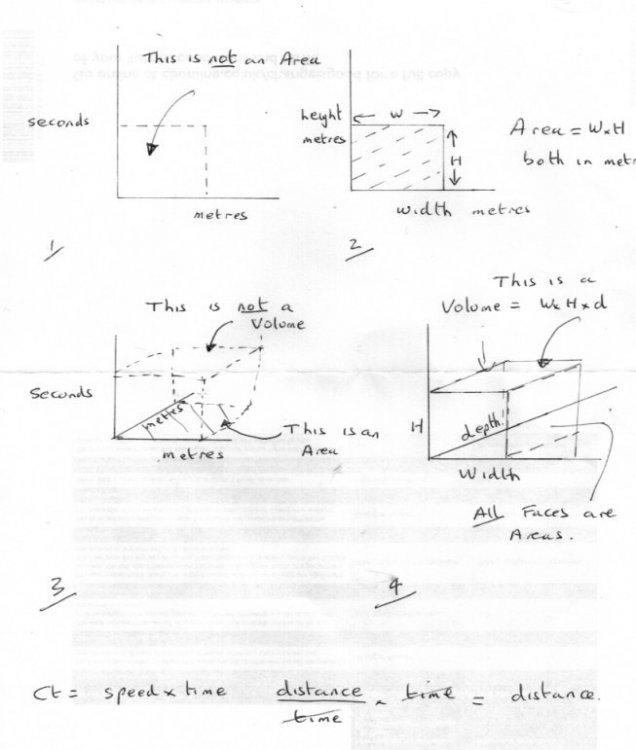 This is not an Area
seconds
metres
1
height
metres
← W →
H
width metres
Area = WxH
both in
2
This is not a
Volume
Seconds
metres
metres
This is an
Area
3
This is a
Volume = WxHxd
H
depth
Width
All Faces are
Areas.
4
Ct = speed x time distance x time = distance.
time